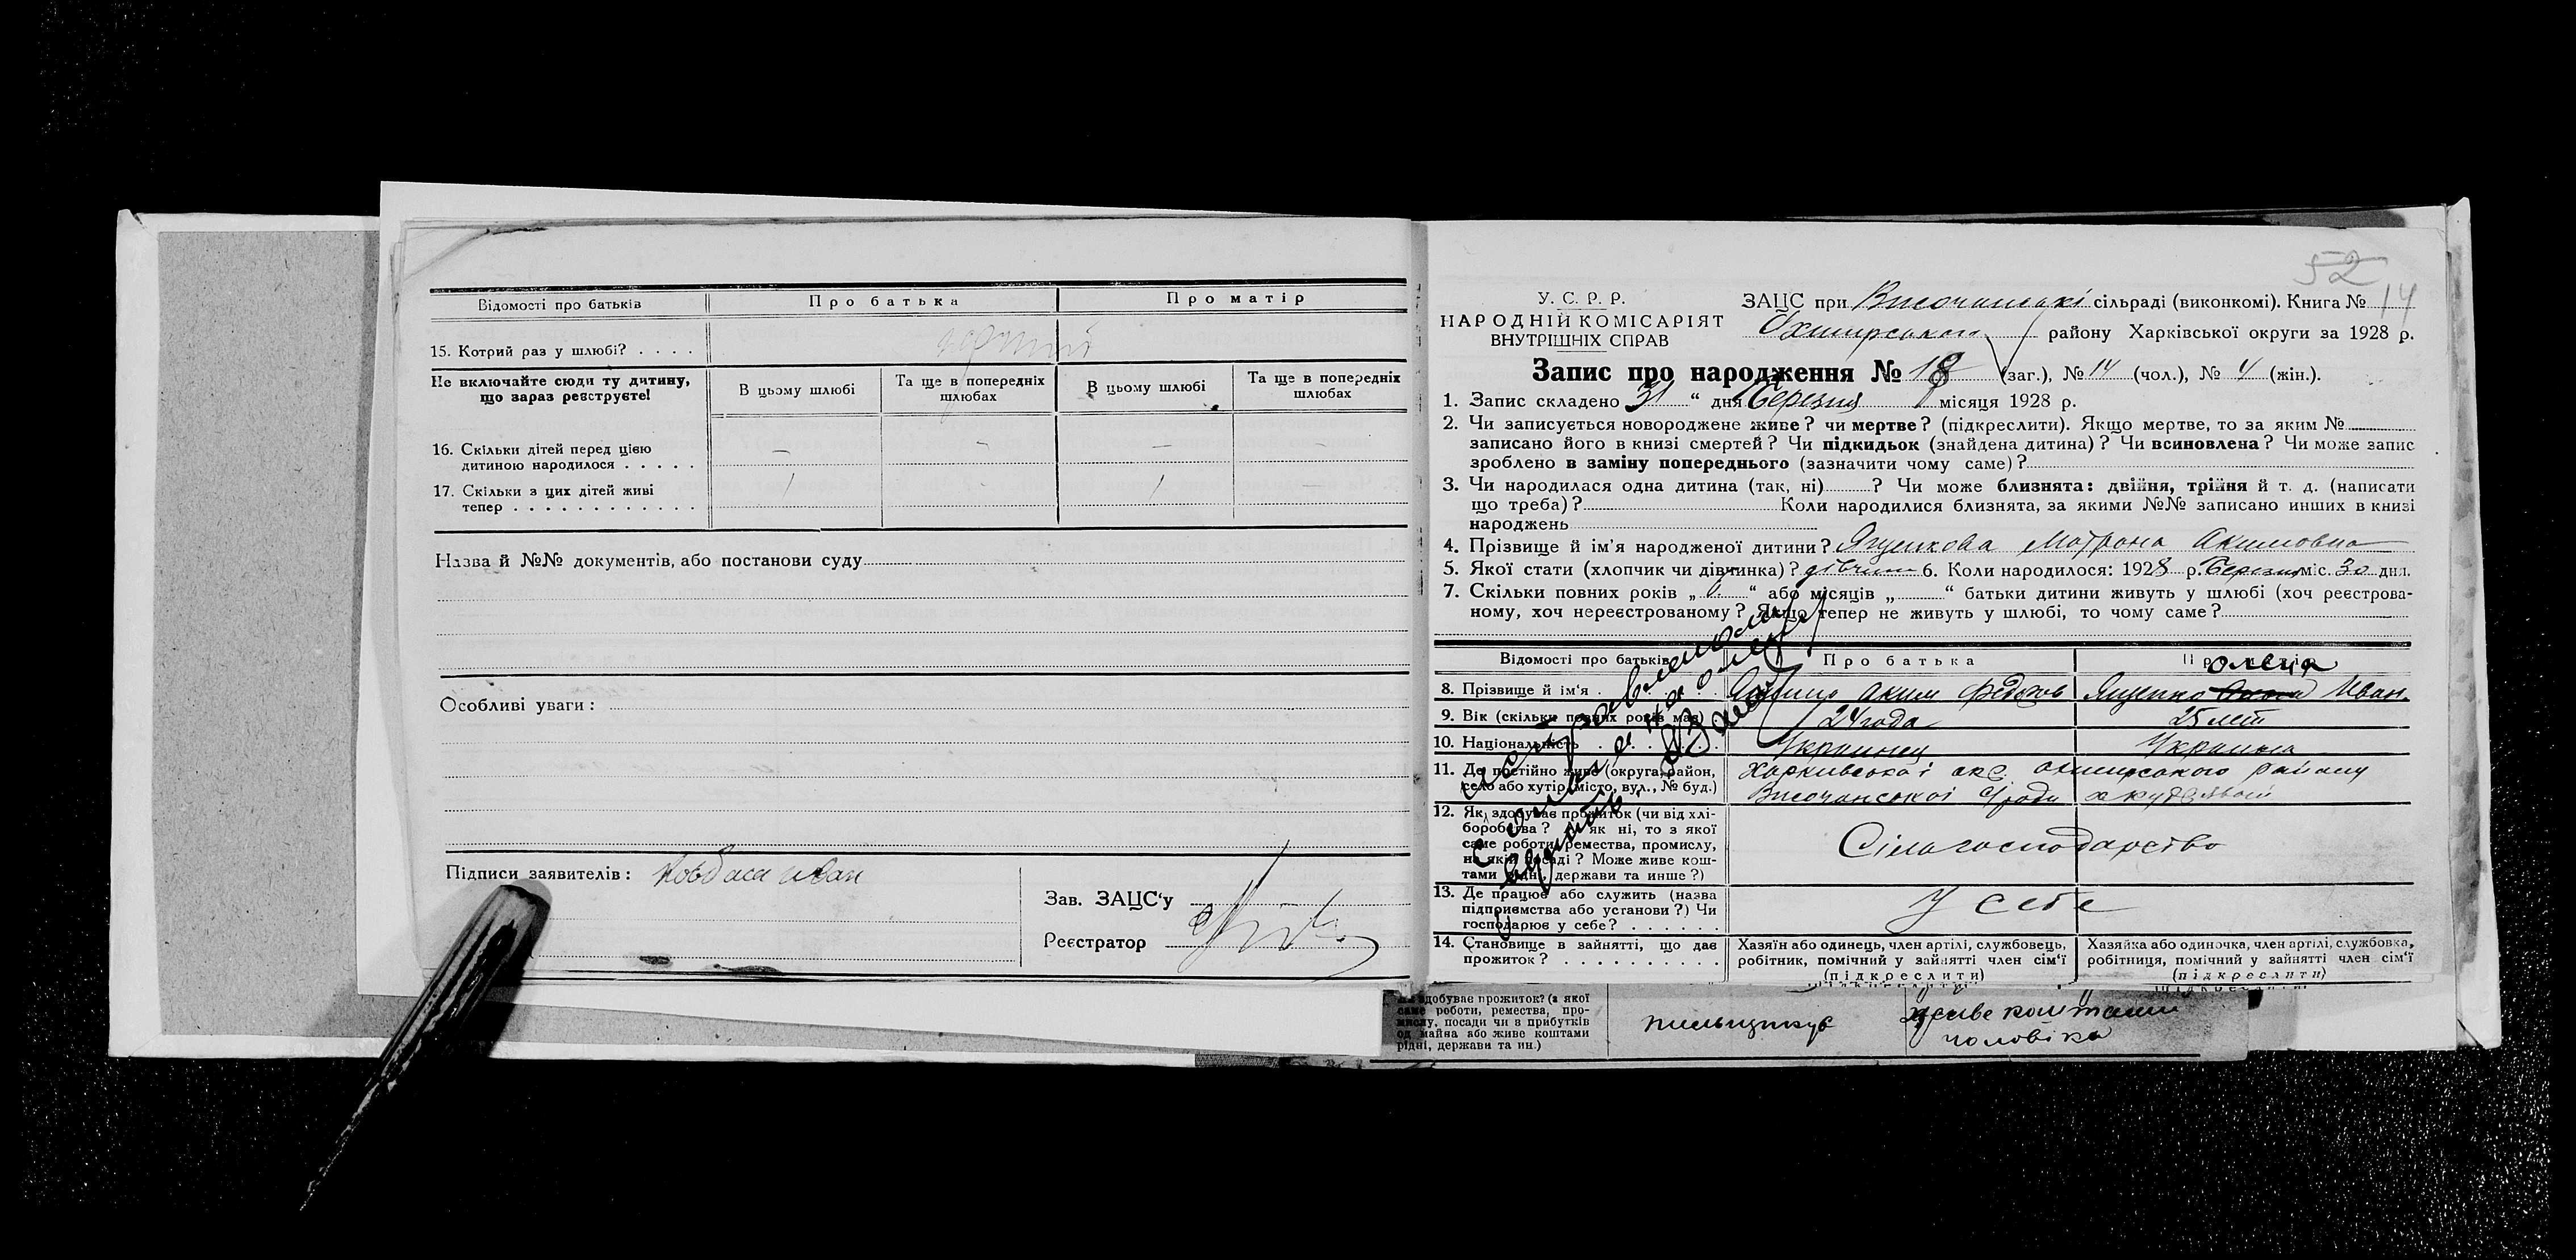 Відомості про батьків
Про батька
Про матір
15. Котрий раз у шлюбі? . . . .
Не включайте сюди ту дитину, що зараз реєструєте!
В цьому шлюбі
Та ще в попередніх шлюбах
В цьому шлюбі
Та ще в попередніх шлюбах
16. Скільки дітей перед цією
дитиною народилося . . . . .
17. Скільки з цих дітей живі
тепер . . . . . . . . . . . .
Назва й №№ документів, або постанови суду
Особливі уваги:
Підписи заявителів:
Зав. ЗАЦС'у
Реєстратор
52
14
У. С. Р. Р.
НАРОДНІЙ КОМІСАРІЯТ
ВНУТРІШНІХ СПРАВ
ЗАЦС при Височанській сільраді (виконкомі). Книга №
району Харківської округи за 1928 р.
Запис про народження № 18 (заг.), № 14 (чол.), № 4 (жін.).
1. Запис складено 31 " дня Березня місяця 1928 р.
2. Чи записується новороджене живе? чи мертве? (підкреслити). Якщо мертве, то за яким №
записано його в книзі смертей? Чи підкидьок (знайдена дитина)? Чи всиновлена? Чи може запис
зроблено в заміну попереднього (зазначити чому саме)?
3. Чи народилася одна дитина (так, ні)? Чи може близнята: двійня, трійня й т. д. (написати
що треба)? Коли народилися близнята, за якими №№ записано инших в книзі
народжень
4. Прізвище й ім'я народженої дитини? Ященкова Мотрона Акимовна
5. Якої стати (хлопчик чи дівчинка)? дівчин 6. Коли народилось: 1928 р. Березня міс. 30 дня.
7. Скільки повних років „ " або місяців „ " батьки дитини живуть у шлюбі (хоч реєстрова-
ному, хоч нереєстрованому? Якщо тепер не живуть у шлюбі, то чому саме?
Відомості про батьків
Про батька
олена
8. Прізвище й ім'я . Аким Федоров Ященко Иван.
9. Вік (скільки повних років має) 24 года 25 лет
10. Національність Украинец Украинка
11. Де постійно живе (округа, район,
село або хутір, місто, вул., № буд.)
Харківської окр. охтирського району
Височанської с/ради
12. Як здобуває прожиток (чи від хлі-
боробства? як ні, то з якої
саме роботи, ремества, промислу,
на якій посаді? Може живе кош-
тами рідні, держави та инше?)
Сільгосподарство
13. Де працює або служить (назва
підприємства або установи?) Чи
господарює у себе? . . . . . .
У себе
14. Становище в зайнятті, що дає
прожиток? . . . . . . . . . . .
Хазяїн або одинець, член артілі, службовець,
робітник, помічний у зайнятті член сім'ї
(підкреслити)
Хазяйка або одиночка, член артілі, службовка,
робітниця, помічний у зайнятті член сім'ї
(підкреслити)
здобуває прожиток? (з якої
саме роботи, ремества, про-
мислу, посади чи в прибутків
од майна або живе коштами
рідні, держави та ин.)
живе коштами
чоловіка